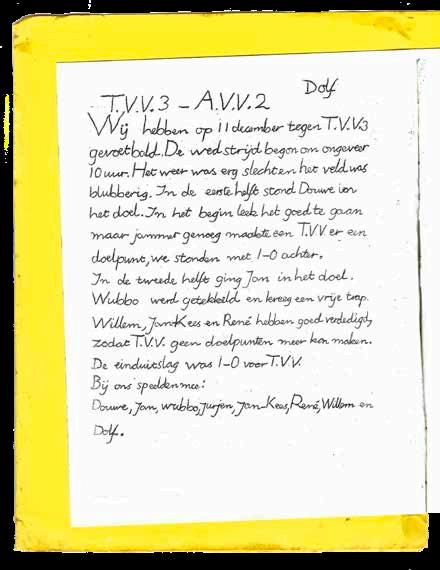 Dolf
T.V.V.3 – A.V.V.2
Wij hebben op 11 december tegen T.V.V.3
gevoetbald. De wedstrijd begon om ongeveer
10 uur. Het weer was erg slecht en het veld was
blubberig. In de eerste helft stond Douwe in
het doel. In het begin leek het goed te gaan
maar jammer genoeg maakte een T.V.V er een
doelpunt, we stonden met 1-0 achter.
In de tweede helft ging Jan in het doel.
Wubbo werd getekkeld en kreeg een vrije trap.
Willem, Jan-Kees en René hebben goed verdedigd,
zodat T.V.V. geen doelpunten meer kon maken.
De einduitslag was 1-0 voor T.V.V.
Bij ons speelden mee:
Douwe, Jan, wubbo, Jurjen, Jan-Kees, René, Willem en
Dolf.